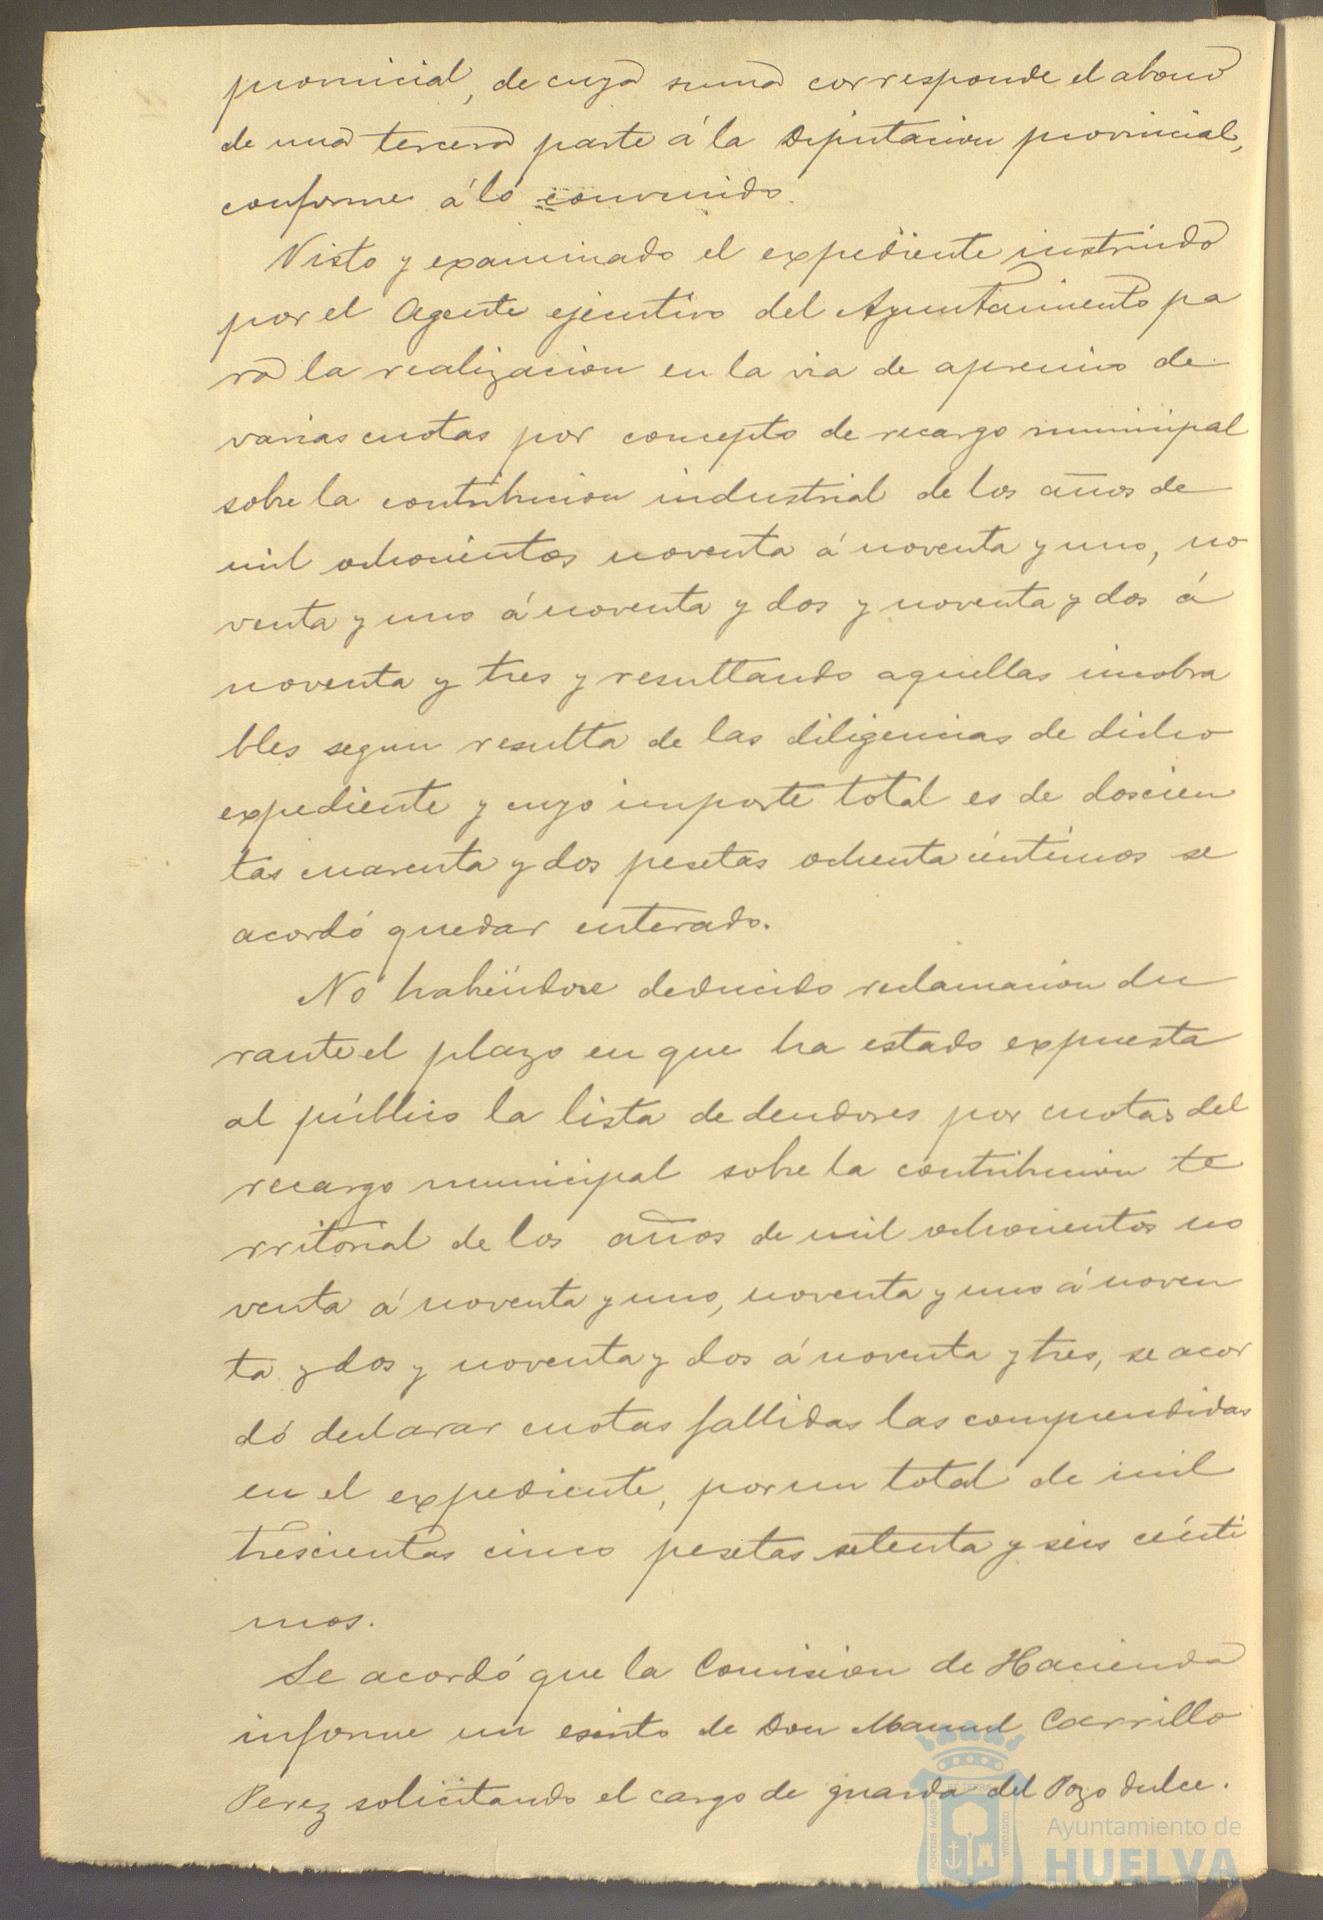 provincial, de cuya suma corresponde el abono
de una tercera parte á la Diputacion provincial,
conforme á lo convenido.
Visto y examinado el expediente instruido
por el Agente ejecutivo del Ayuntamiento pa
ra la realizacion en la via de apremio de
varias cuotas por concepto de recargo municipal
sobre la contribucion industrial de los años de
mil ochocientos noventa á noventa y uno, no
venta y uno á noventa y dos y noventa y dos á
noventa y tres y resultando aquellas incobra
bles segun resulta de las diligencias de dicho
expediente y cuyo importe total es de doscien
tas cuarenta y dos pesetas ochenta céntimos se
acordó quedar enterado.
No habiéndose deducido reclamacion du
rante el plazo en que ha estado expuesta
al público la lista de deudores por cuotas del
recargo municipal sobre la contribucion te
rritorial de los años de mil ochocientos no
venta á noventa y uno, noventa y uno á noven
ta y dos y noventa y dos á noventa y tres, se acor
dó declarar cuotas fallidas las comprendidas
en el expediente, por un total de mil
trescientas cinco pesetas setenta y seis cénti
mos.
Se acordó que la Comision de Hacienda
informe un escrito de Don Manuel Carrillo
Perez solicitando el cargo de guarda del Pozo dulce.
Ayuntamiento de
HUELVA